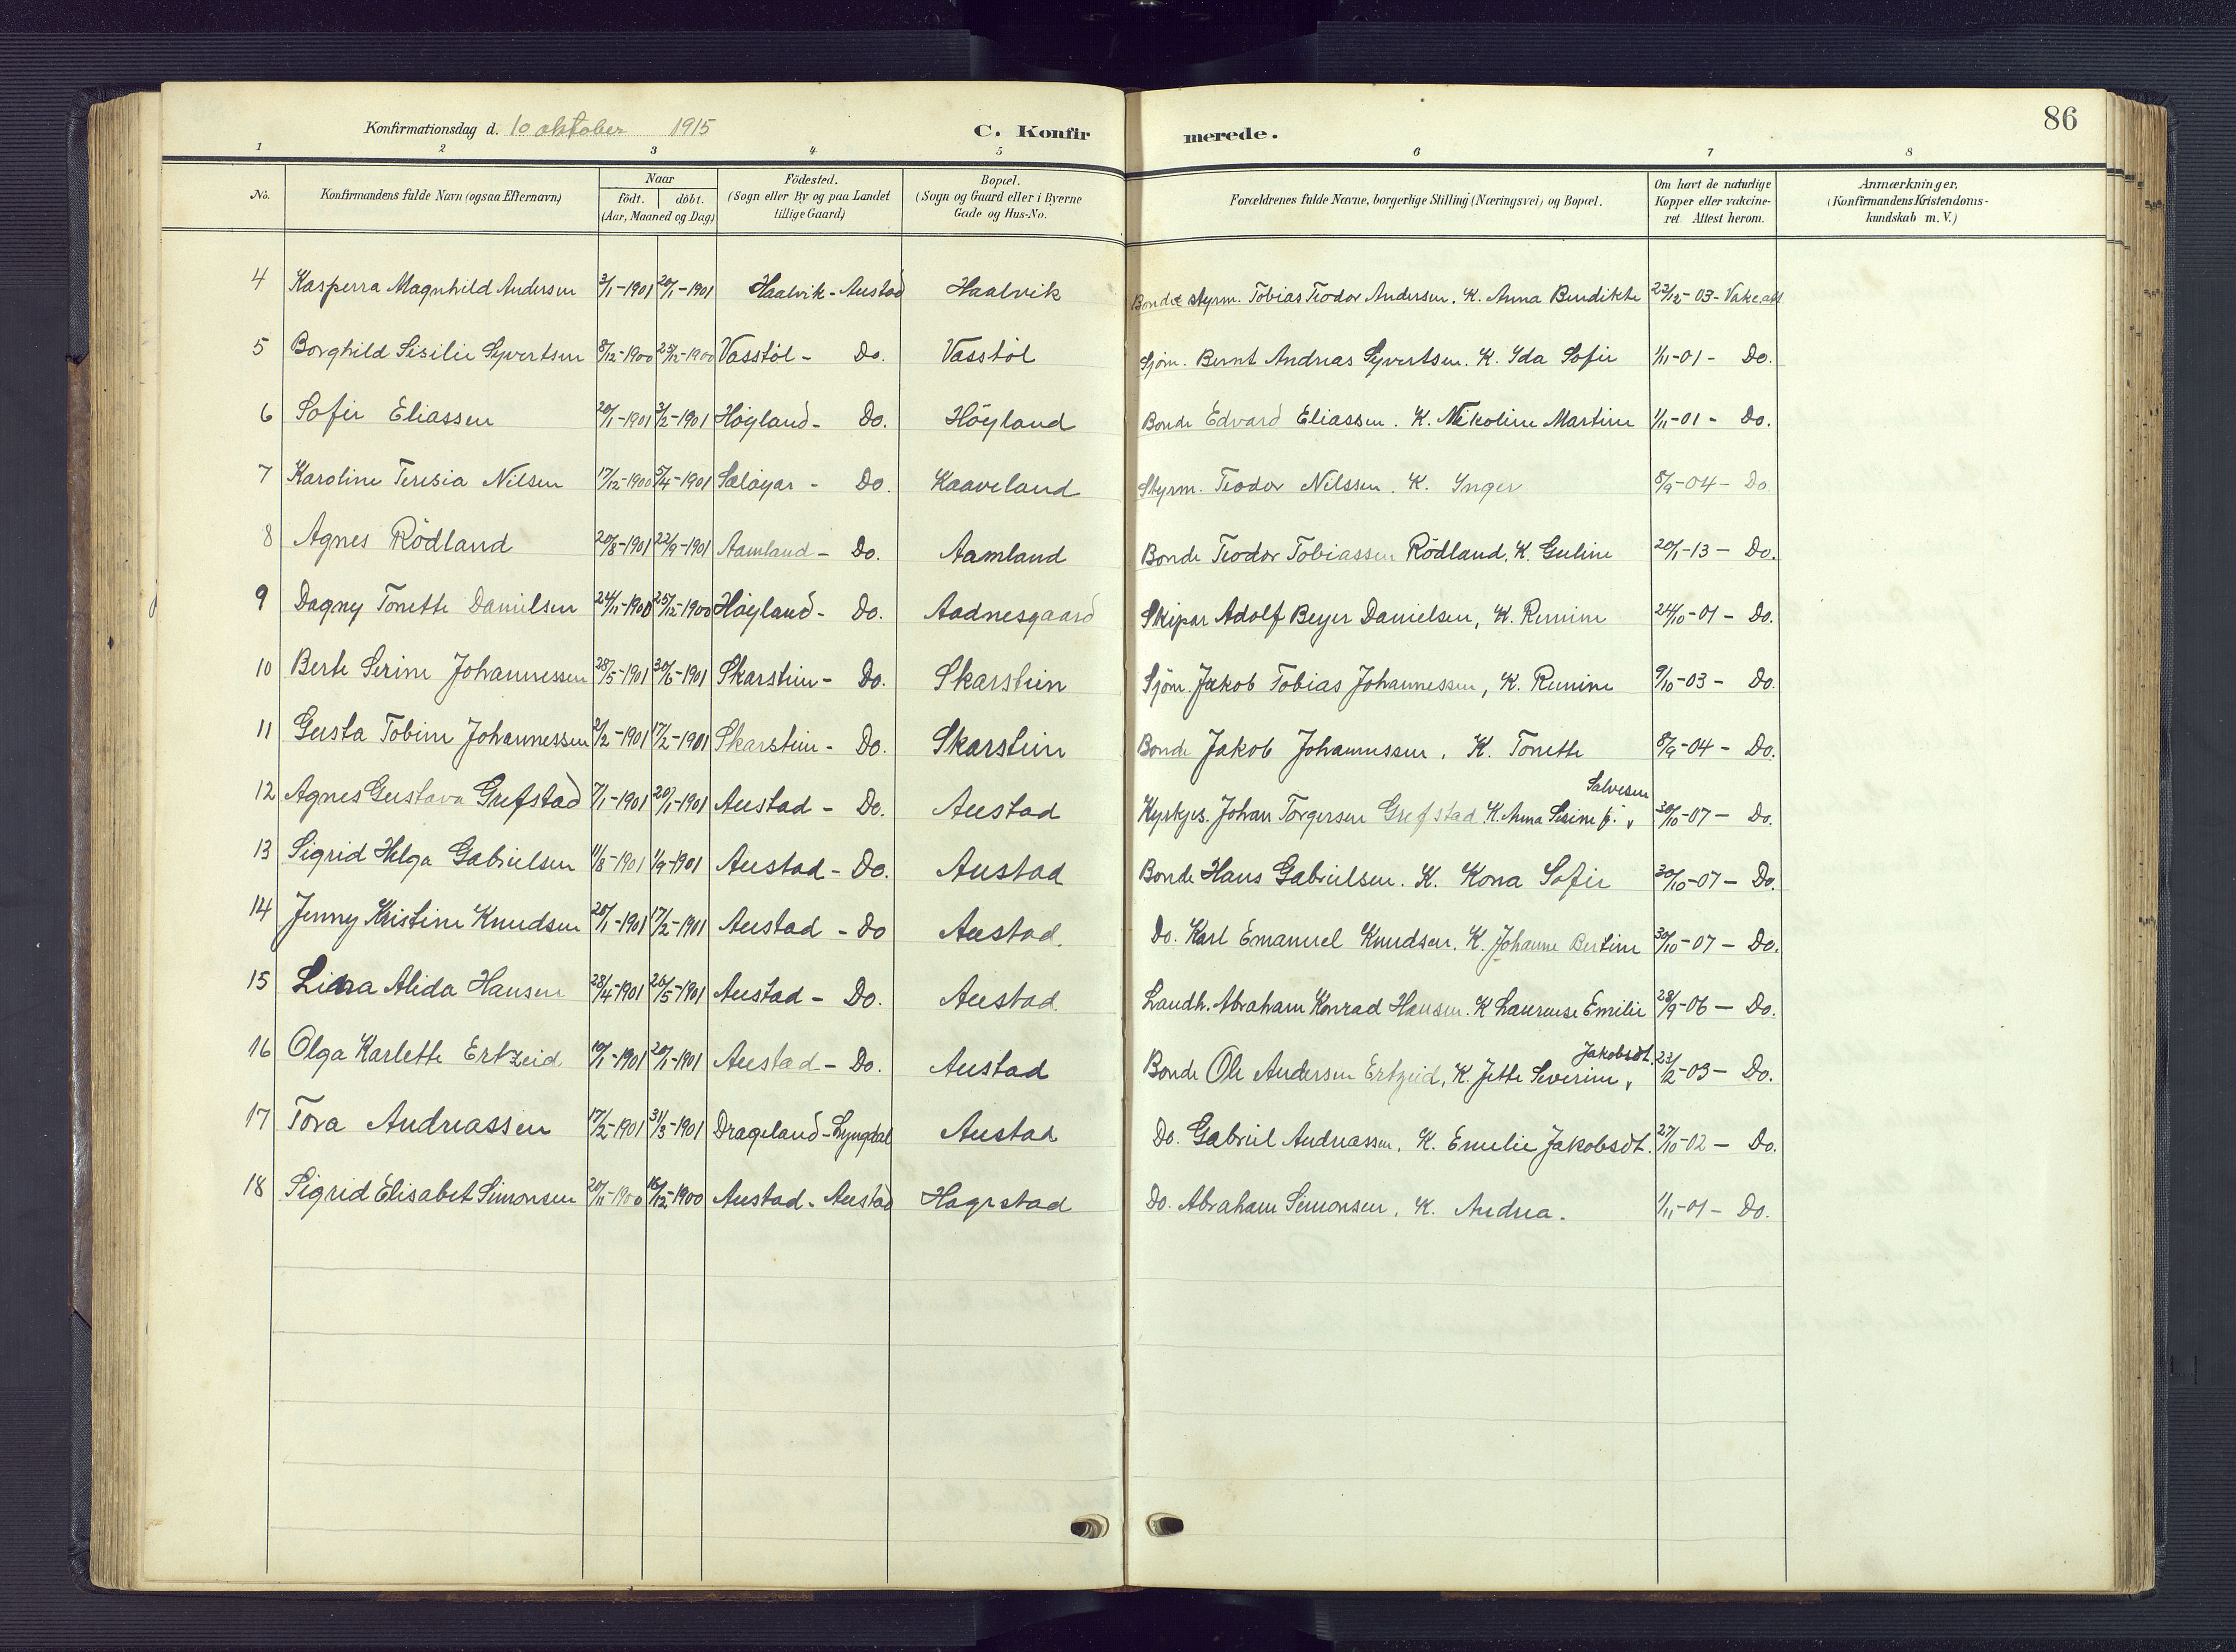 Konfirmationsdag d. 10 oktober 1915 C. Konfirmerede. 86
1 2 3 4 5 6 7 8
No. Konfirmandens fulde Navn (ogsaa Efternavn) Naar födt. döbt. (Aar, Maaned og Dag) Födested. (Sogn eller By og paa Landet tillige Gaard) Bopæl. (Sogn og Gaard eller i Byerne Gade og Hus-No. Forældrenes fulde Navne, borgerlige Stilling (Næringsvei) og Bopæl. Om havt de naturlige Kopper eller vakcineret. Attest herom. Anmærkninger. (Konfirmandens Kristendomskundskab m. V.)
4 Kasperra Magnhild Andersen 3/1-1901 20/1-1901 Haalvik - Austad Haalvik Bonde styrm. Tobias Teodor Andersen. K. Anna Bendikte 22/12-03- Vakc.att
5 Borghild Sisilie Syvertsen 8/12-1900 25/12-1900 Vasstöl - Do. Vasstöl Sjöm. Bernt Andreas Syvertsen. K. Ida Sofie 1/11-01- Do.
6 Sofie Eliassen 20/1-1901 3/2-1901 Höyland - Do. Höyland Bonde Edvard Eliassen. K. Nikoline Martine 1/11-01 - Do.
7 Karoline Teresia Nilsen 17/12-1900 5/4-1901 Salöyar - Do. Kaaveland Styrm. Teodor Nilssen. K. Inger 8/9-04- Do.
8 Agnes Rödland 20/8-1901 22/9-1901 Aamland - Do. Aamland Bonde Teodor Tobiassen Rödland, K. Guline 20/1-13 - Do.
9 Dagny Tonette Danielsen 24/11-1900 25/12-1900 Höyland - Do. Aadnesgaard Skipar Adolf Beyer Danielsen, K. Remine 24/10-01 - Do.
10 Berte Serine Johannessen 28/5-1901 30/6-1901 Skarstein - Do. Skarstein Sjöm. Jakob Tobias Johannessen, K. Remine 9/10-03 - Do.
11 Gusta Tobine Johannessen 2/2-1901 17/2-1901 Skarstein - Do. Skarstein Bonde Jakob Johannessen, K. Tonette 8/9-04 - Do.
12 Agnes Gustava Grefstad 7/1-1901 20/1-1901 Austad - Do. Austad Kyrkjes. Johan Torgersen Grefstad K. Anna Serine f. Salvesen 30/10-07 - Do.
13 Sigrid Helga Gabrielsen 11/8-1901 1/9-1901 Austad - Do. Austad Bonde Hans Gabrielsen. K. Kona Sofie 30/10-07 - Do.
14 Jenny Kristine Knudsen 20/1-1901 17/2-1901 Austad - Do Austad. Do. Karl Emanuel Knudsen. K. Johanne Bertine 30/10-07 - Do.
15 Lina Alida Hansen 28/4-1901 26/5-1901 Austad - Do. Austad. Landh. Abraham Konrad Hansen. K Laurense Emilie 28/9-06 - Do.
16 Olga Karlette Ertzeid 10/1-1901 20/1-1901 Austad - Do. Austad Bonde Ole Andersen Ertzeid, K. Jette Severine Jakobsdt. 23/2-03 - Do.
17 Tora Andreassen 17/2-1901 31/3-1901 Drageland - Lyngdal Austad Do. Gabriel Andreassen, K. Emelie Jakobsdt. 27/10-02 - Do.
18 Sigrid Elisabet Simonsen 20/11-1900 16/12-1900 Austad - Austad Hagestad Do. Abraham Simonsen, K. Andrea. 1/11-01 - Do.